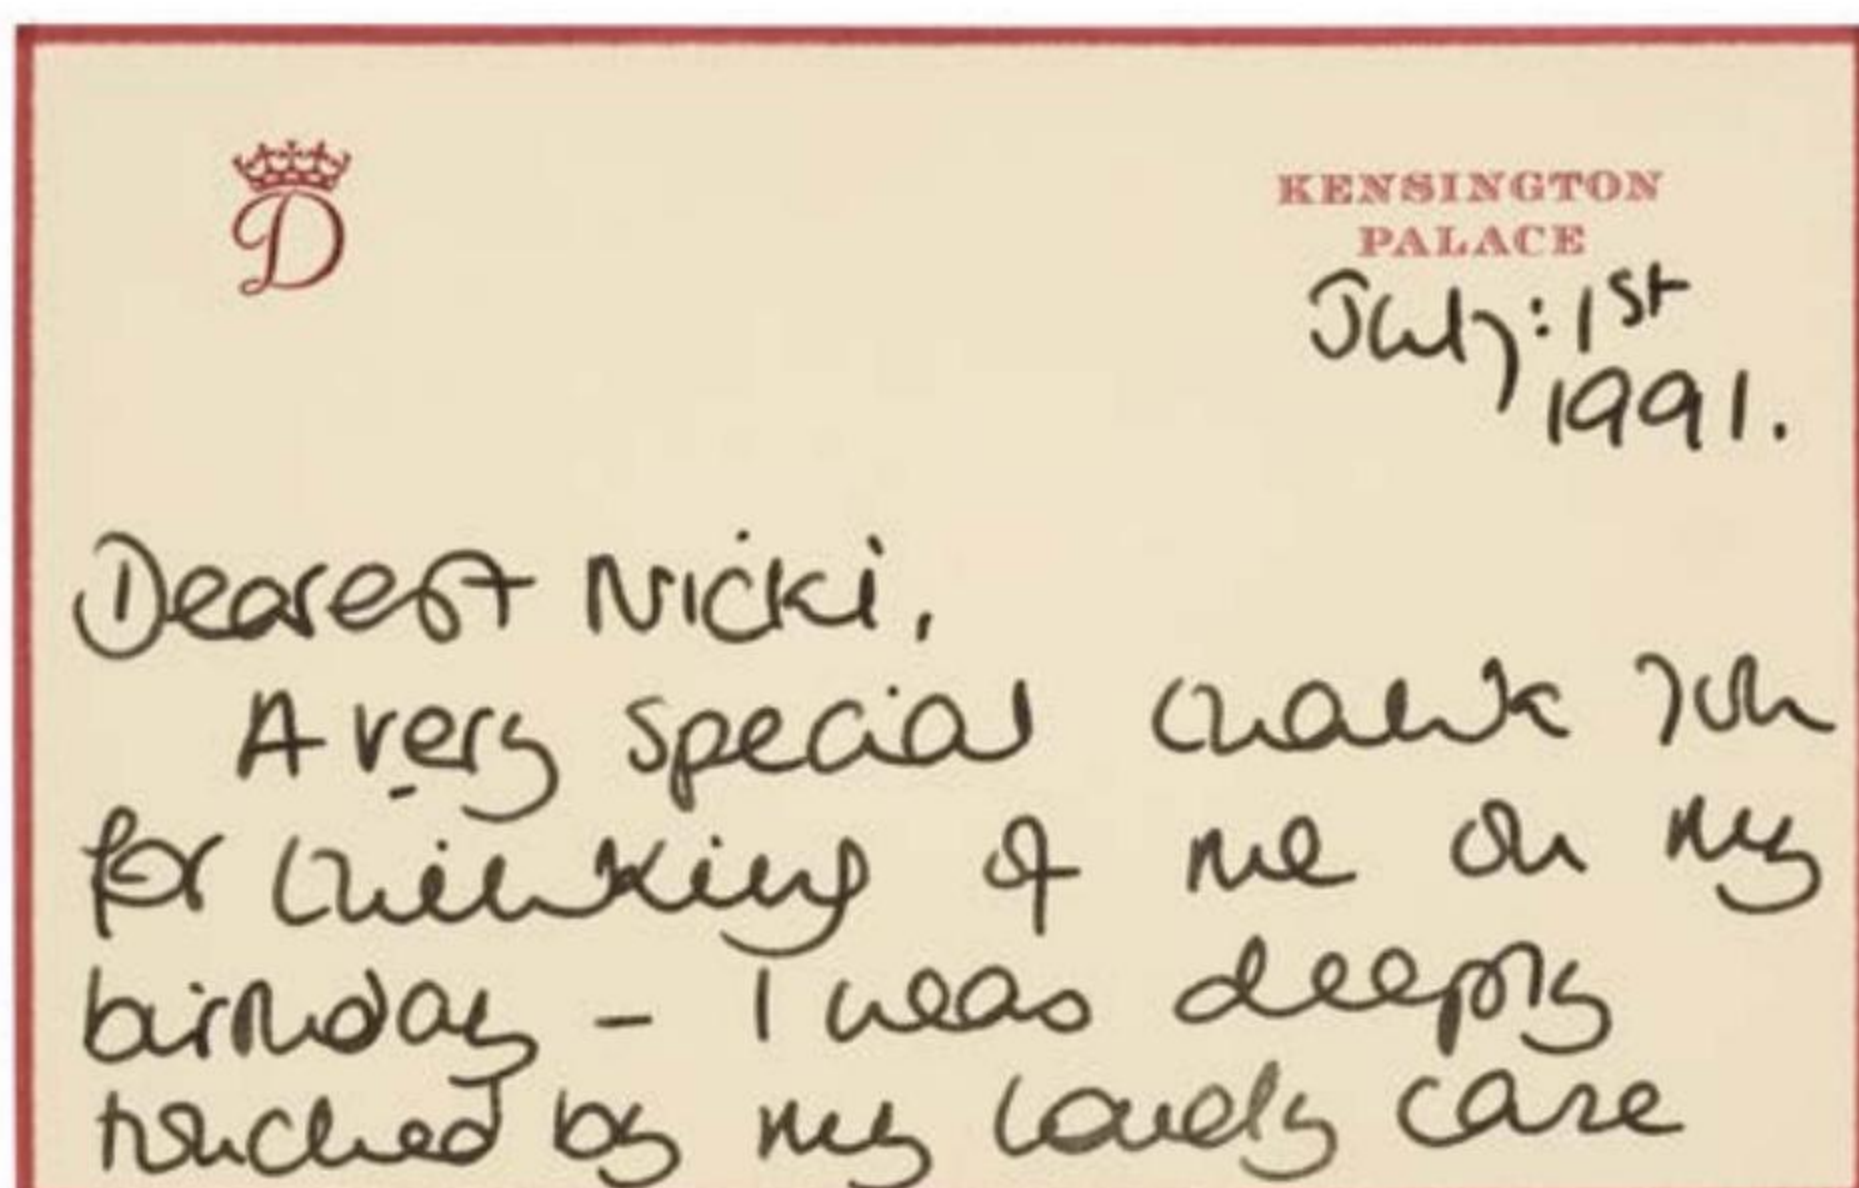 D
KENSINGTON
PALACE
July: 1st
1991.
Dearest Nicki,
A very special thank you
for thinking of me on my
birthday – I was deeply
touched by my lovely case